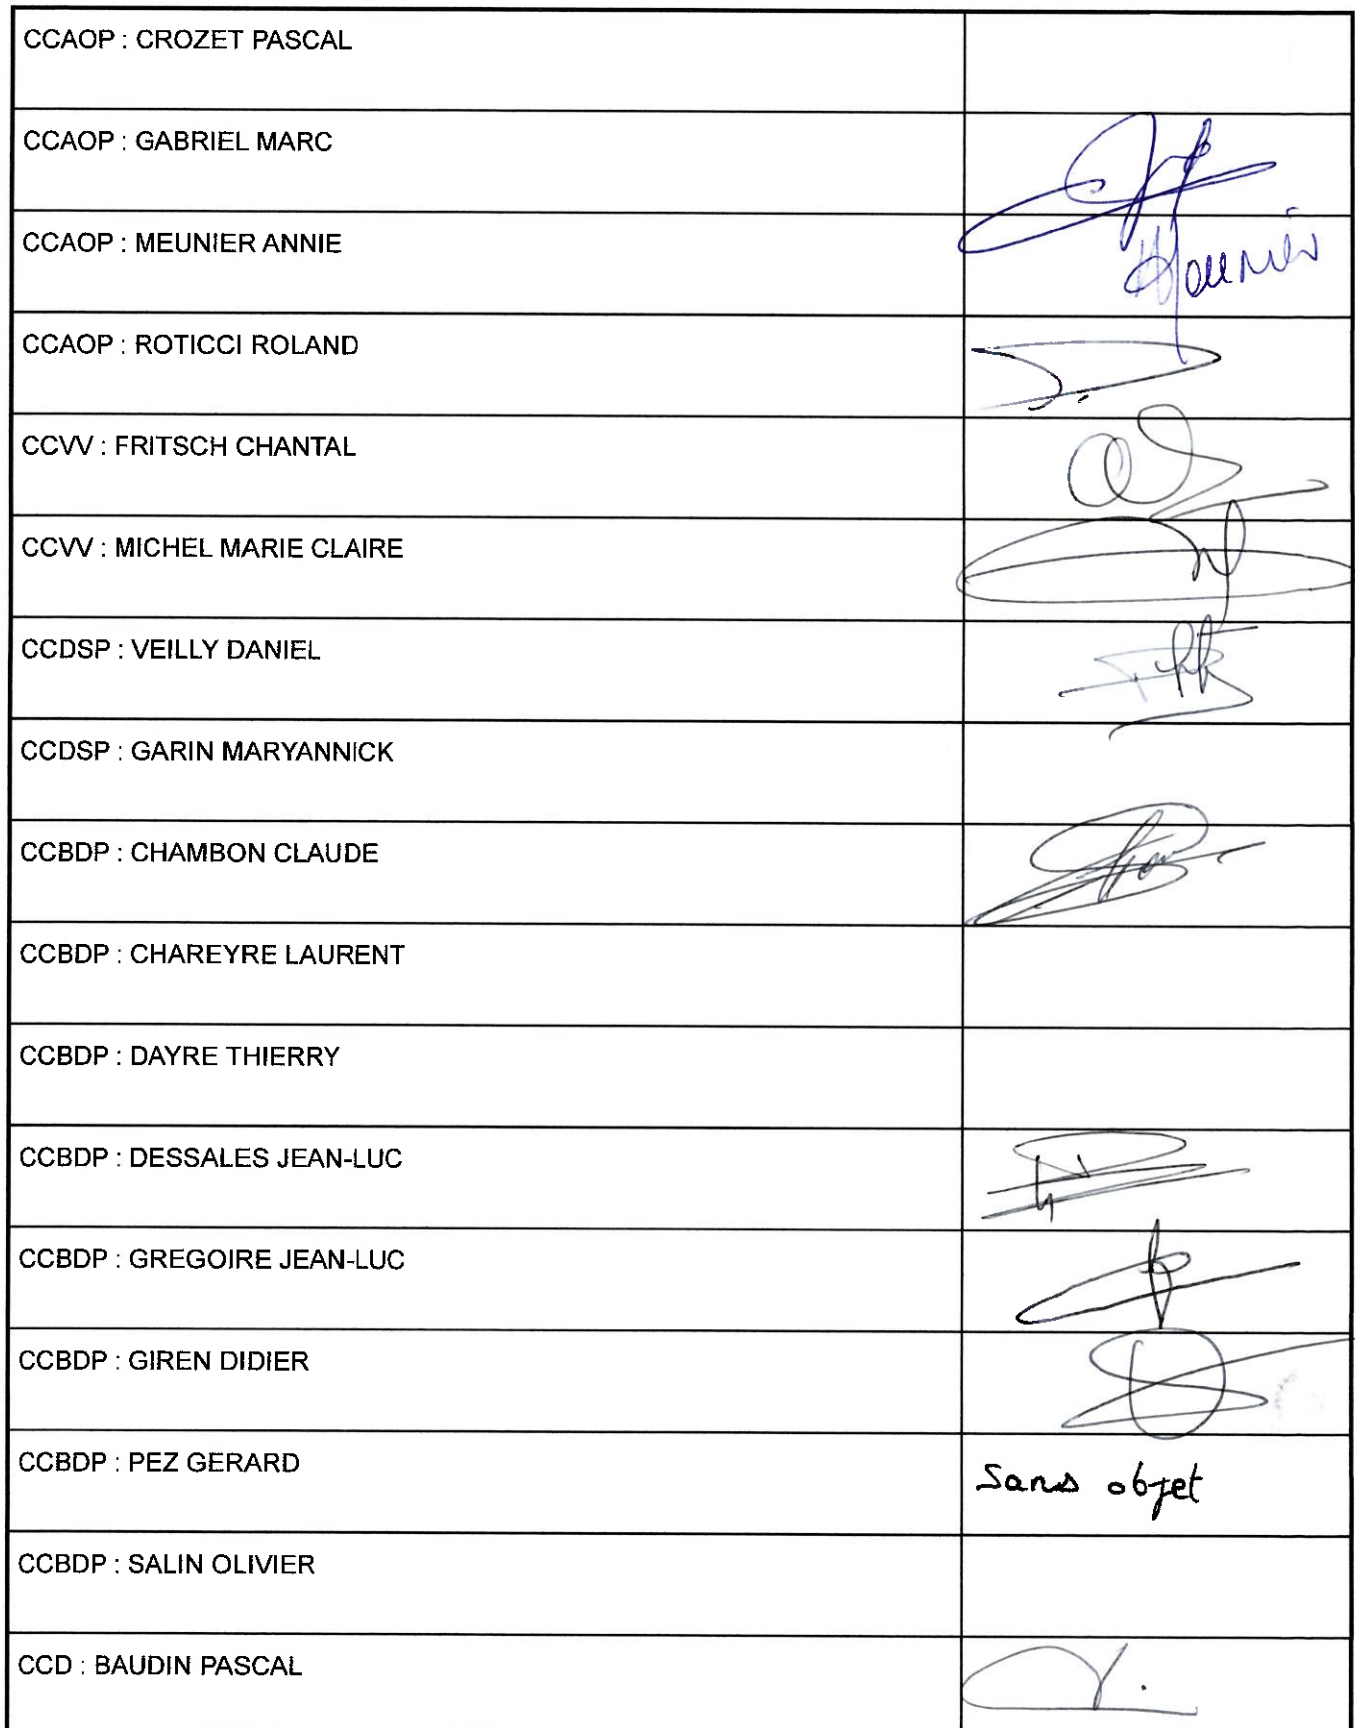 CCAOP : CROZET PASCAL
CCAOP : GABRIEL MARC
CCAOP : MEUNIER ANNIE
Meunier
CCAOP : ROTICCI ROLAND
CCVV : FRITSCH CHANTAL
CCVV : MICHEL MARIE CLAIRE
CCDSP : VEILLY DANIEL
CCDSP : GARIN MARYANNICK
CCBDP : CHAMBON CLAUDE
CCBDP : CHAREYRE LAURENT
CCBDP : DAYRE THIERRY
CCBDP : DESSALES JEAN-LUC
CCBDP : GREGOIRE JEAN-LUC
CCBDP : GIREN DIDIER
CCBDP : PEZ GERARD
Sans objet
CCBDP : SALIN OLIVIER
CCD : BAUDIN PASCAL